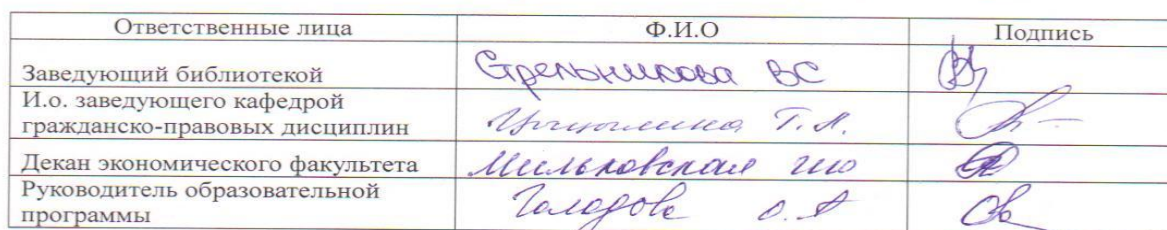 Ответственные лица Ф.И.О Подпись
Заведующий библиотекой Стрельникова ВС
И.о. заведующего кафедрой
гражданско-правовых дисциплин Т.Л.
Декан экономического факультета Мильковская
Руководитель образовательной
программы О.А